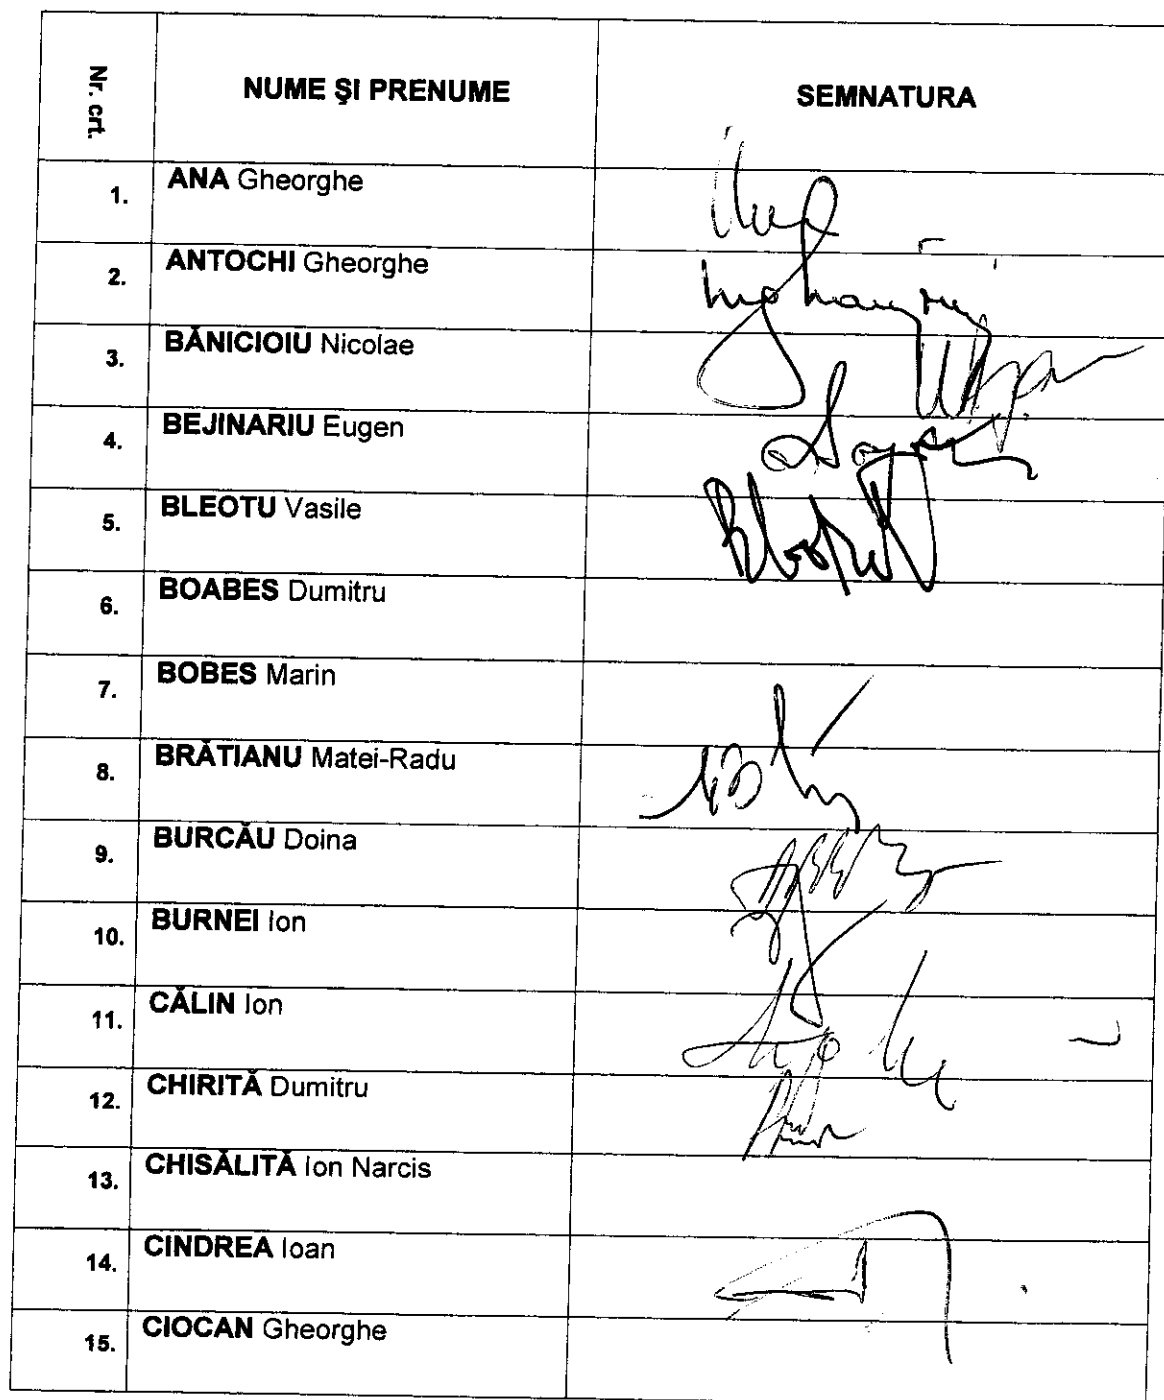 Nr. crt. NUME ŞI PRENUME SEMNATURA
1. ANA Gheorghe
2. ANTOCHI Gheorghe
3. BĂNICIOIU Nicolae
4. BEJINARIU Eugen
5. BLEOTU Vasile
6. BOABES Dumitru
7. BOBES Marin
8. BRĂTIANU Matei-Radu
9. BURCĂU Doina
10. BURNEI Ion
11. CĂLIN Ion
12. CHIRITĂ Dumitru
13. CHISĂLITĂ Ion Narcis
14. CINDREA Ioan
15. CIOCAN Gheorghe